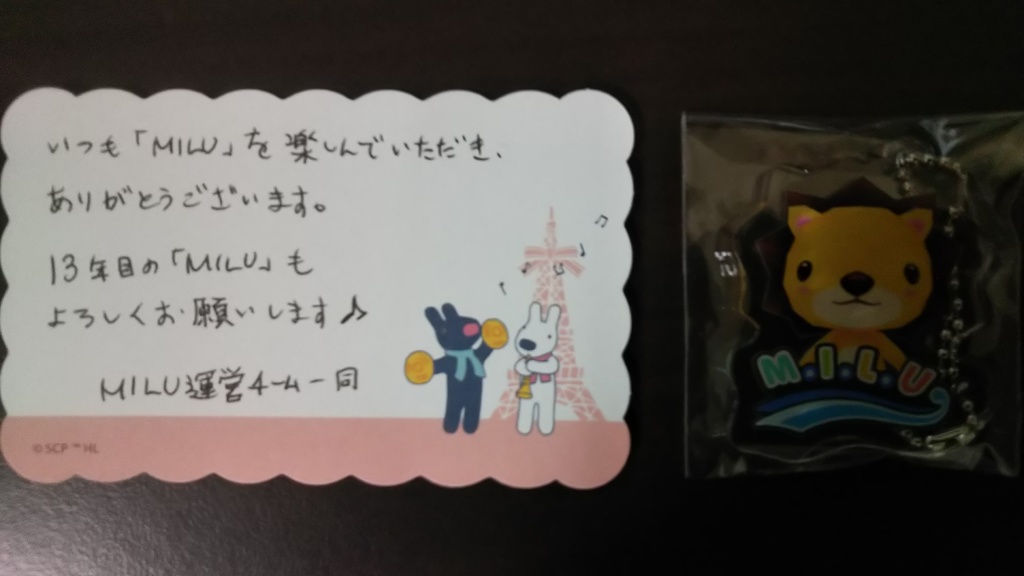 いつも「MILU」を楽しんでいただき、
ありがとうございます。
13年目の「MILU」も
よろしくお願いします♪
MILU運営チーム一同
© SCP ™ HL
M.I.L.U